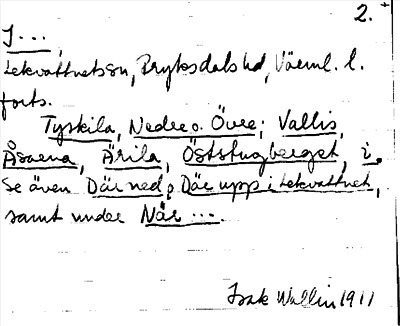 2.
I ...,
Lekvattnets sn, Fryksdals hd, Värml. l.
forts.
Tyskila, Nedre o. Övre; Vallis,
Åsarna, Ärila, Öststugberget, i.
Se även Där ned o Där upp i Lekvattnet,
samt under När ....
Isak Wallin 1911